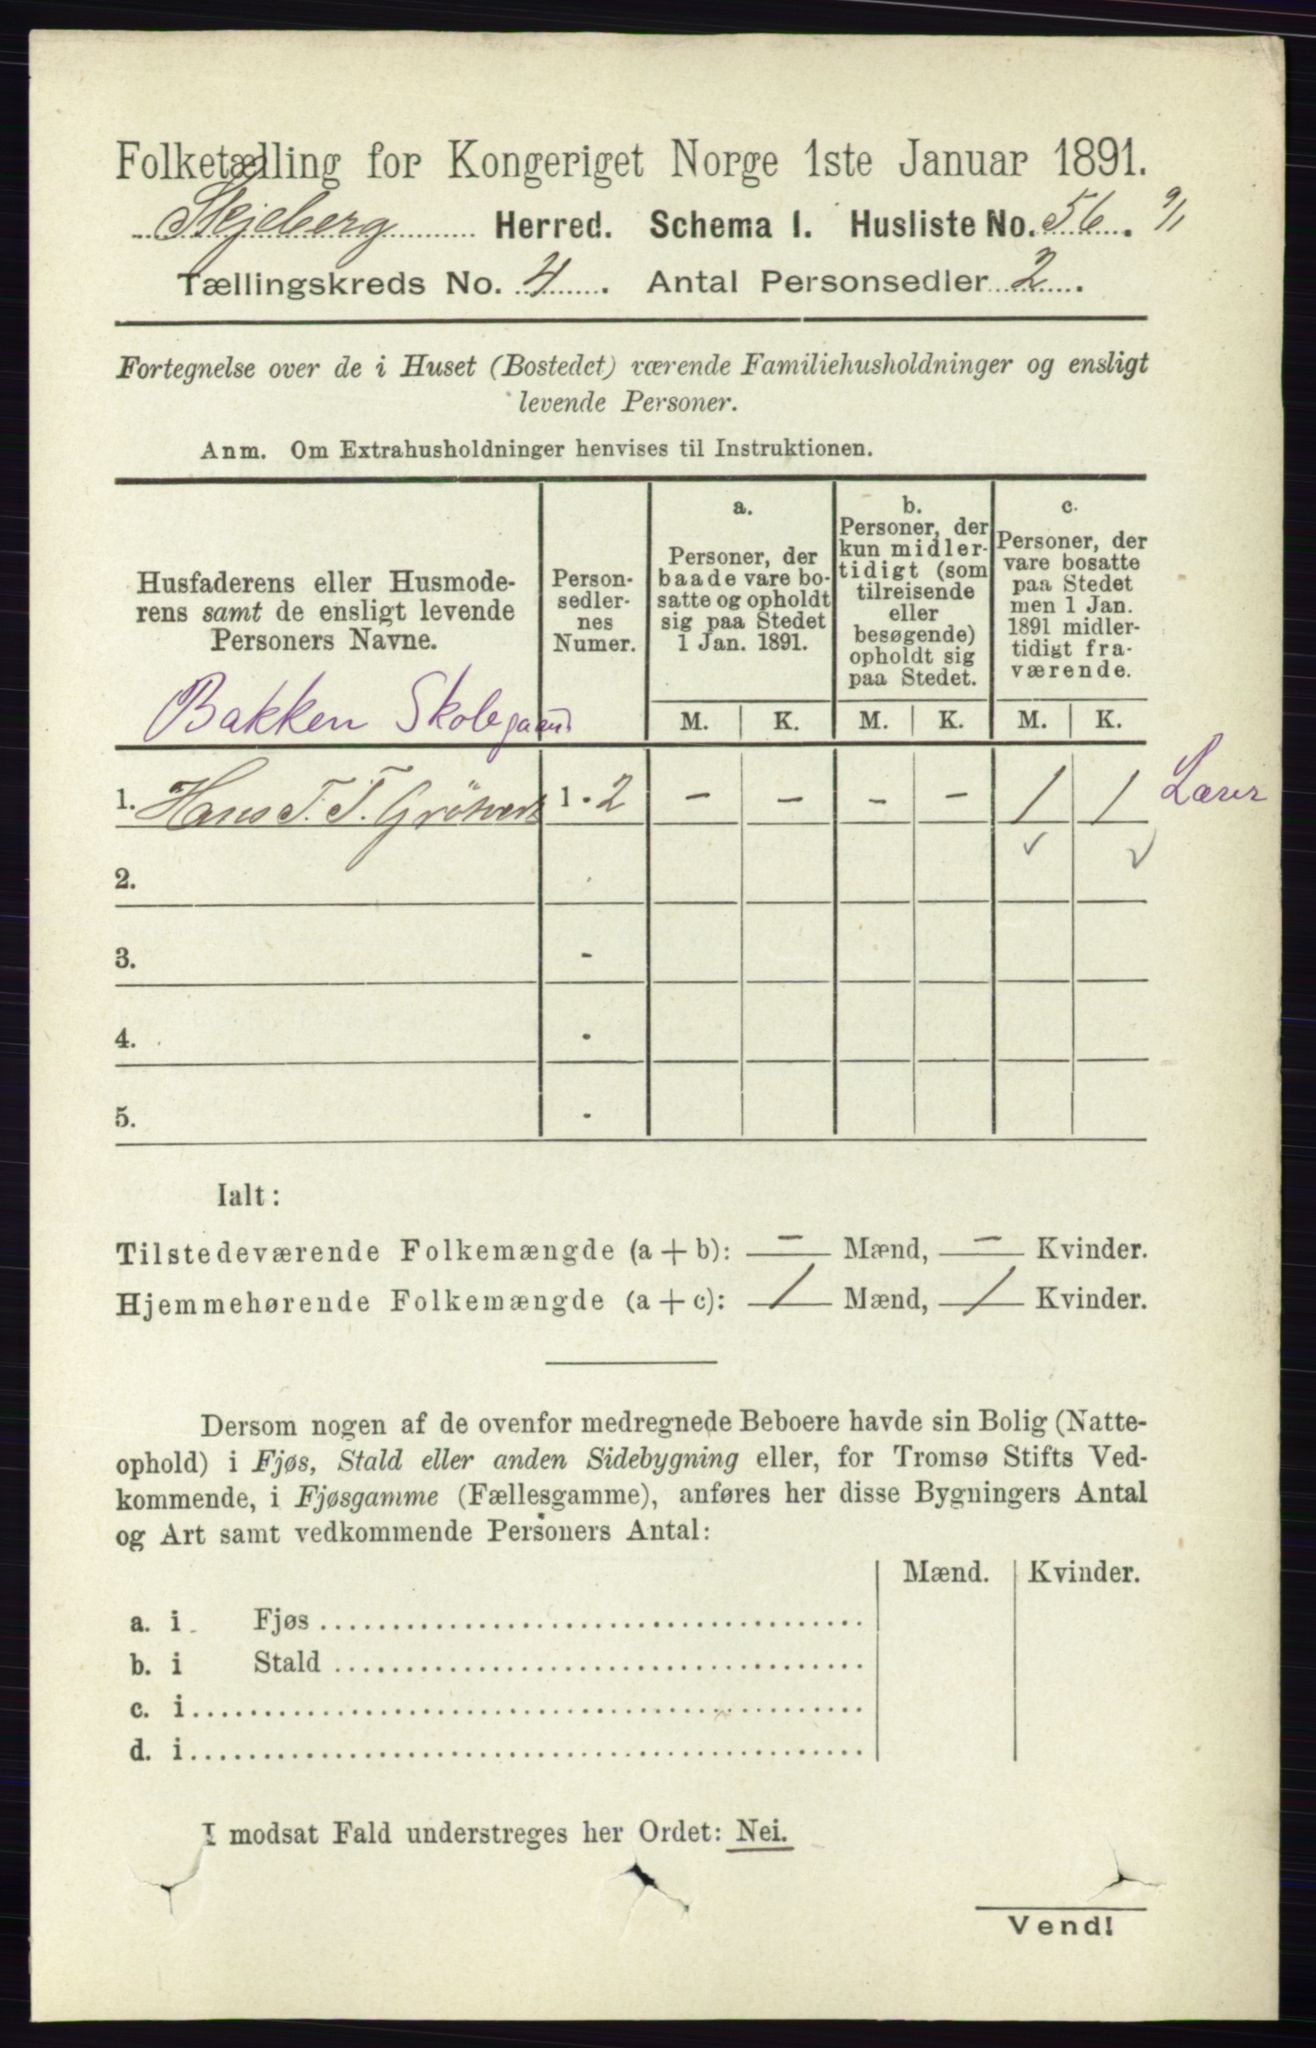 Folketælling for Kongeriget Norge 1ste Januar 1891.
Skjeberg Herred. Schema I. Husliste No. 56. 9/1
Tællingskreds No. 4. Antal Personsedler 2.
Fortegnelse over de i Huset (Bostedet) værende Familiehusholdninger og ensligt
levende Personer.
Anm. Om Extrahusholdninger henvises til Instruktionen.
Husfaderens eller Husmode-
rens samt de ensligt levende
Personers Navne.
Bakken Skolegaard
Person-
sedler-
nes
Numer.
a.
Personer, der
baade vare bo-
satte og opholdt
sig paa Stedet
1 Jan. 1891.
b.
Personer, der
kun midler-
tidigt (som
tilreisende
eller
besøgende)
opholdt sig
paa Stedet.
c.
Personer, der
vare bosatte
paa Stedet
men 1 Jan.
1891 midler-
tidigt fra-
værende.
M. K. M. K. M. K.
1. Hans T. T. 1 - 2 - - - - 1 1 Lærer
2.
3. -
4. -
5. -
Ialt:
Tilstedeværende Folkemængde (a + b): - Mænd, - Kvinder.
Hjemmehørende Folkemængde (a + c): 1 Mænd, 1 Kvinder.
Dersom nogen af de ovenfor medregnede Beboere havde sin Bolig (Natte-
ophold) i Fjøs, Stald eller anden Sidebygning eller, for Tromsø Stifts Ved-
kommende, i Fjøsgamme (Fællesgamme), anføres her disse Bygningers Antal
og Art samt vedkommende Personers Antal:
Mænd. Kvinder.
a. i Fjøs
b. i Stald
c. i
d. i
I modsat Fald understreges her Ordet: Nei.
Vend!